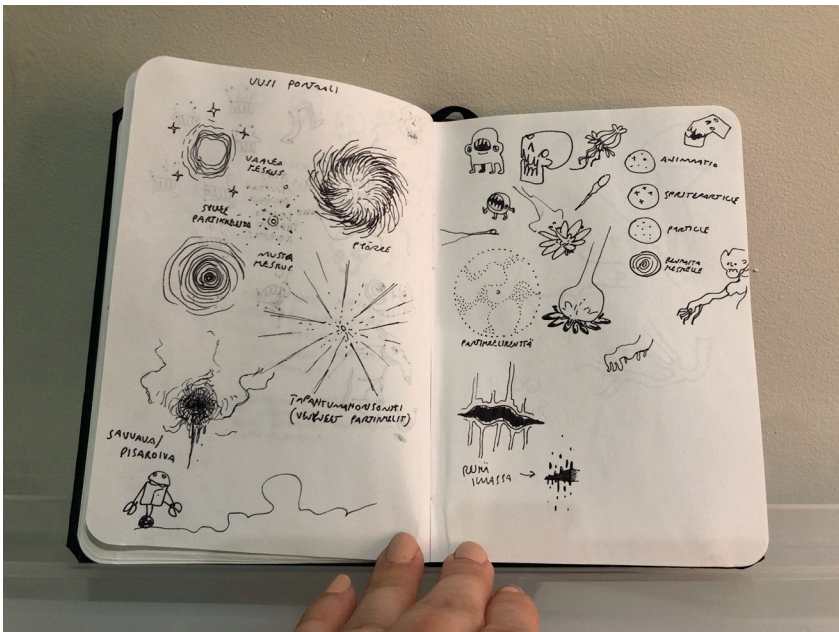 UUSI PORTAALI
VAALEA
KESKUS
SYKEE
PARTIKKELEITA
PYÖRRE
MUSTA
KESKUS
TAPAHTUMAHORISONTTI
(VIHREÄT PARTIKKELIT)
SAVUAVA/
PISAROIVA
ANIMAATIO
SPRITEPARTICLE
PARTICLE
PARTIKKELIKENTTÄ
REIKÄ
ILMASSA